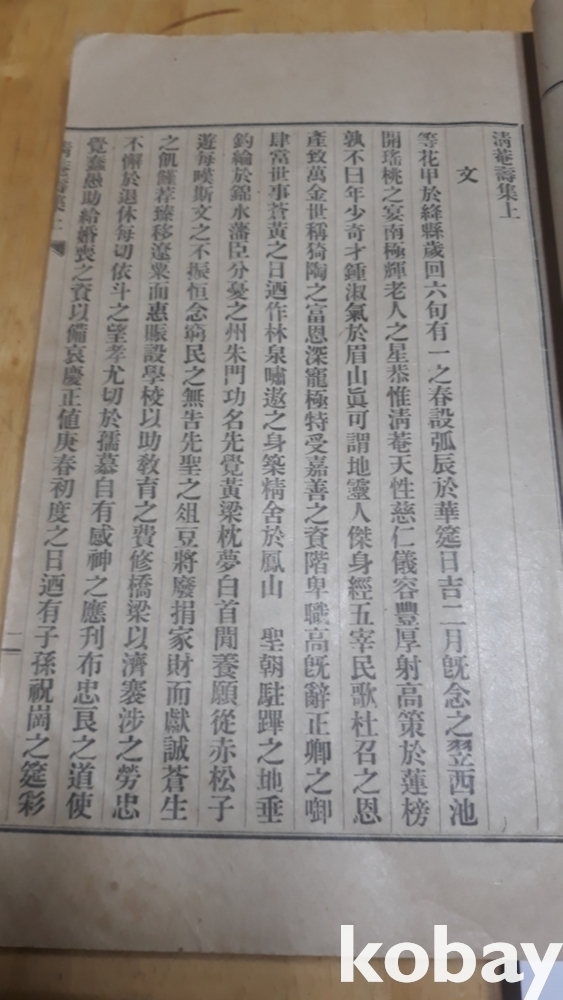 淸菴壽集上
文
等花甲於絳縣歲回六旬有一之春設弧辰於華筵日吉二月旣念之翌西池
開瑤桃之宴南極輝老人之星恭惟淸菴天性慈仁儀容豐厚射高策於蓮榜
孰不曰年少奇才鍾淑氣於眉山眞可謂地靈人傑身經五宰民歌杜召之恩
產致萬金世稱猗陶之富恩深寵極特受嘉善之資階卑職高旣辭正卿之啣
肆當世事蒼黃之日迺作林泉嘯遨之身築精舍於鳳山 聖朝駐蹕之地垂
釣綸於錦水藩臣分憂之州朱門功名先覺黃梁枕夢白首閒養願從赤松子
遊每嘆斯文之不振恒念窮民之無告先聖之俎豆將廢捐家財而獻誠蒼生
之飢饉荐臻移遼粟而惠賑設學校以助敎育之費修橋梁以濟褰涉之勞忠
不懈於退休每切依斗之望孝尤切於孺慕自有感神之應刊布忠良之道使
覺蠢愚助給婚喪之資以備哀慶正値庚春初度之日迺有子孫祝崗之筵彩
淸菴壽集上
一
kobay